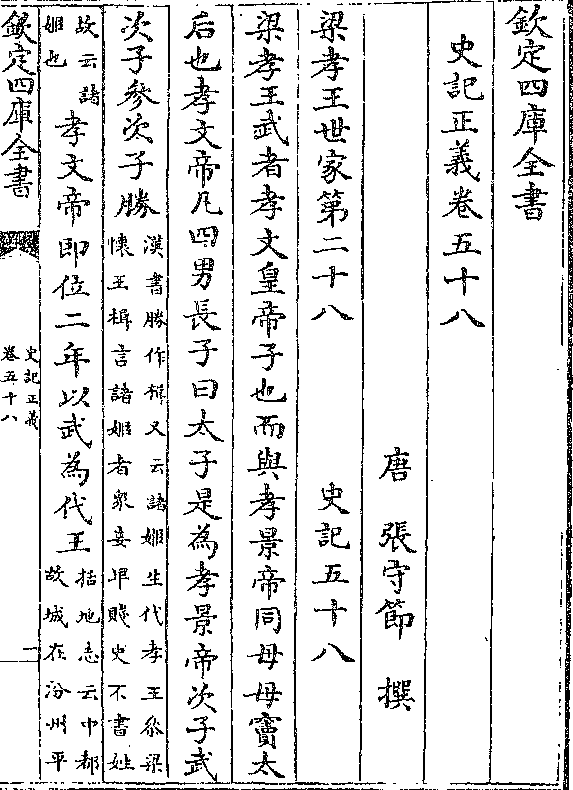 欽定四庫全書
史記正義卷五十八
唐 張守節 撰
梁孝王世家第二十八 史記五十八
梁孝王武者孝文皇帝子也而與孝景帝同母母竇太
后也孝文帝凡四男長子曰太子是為孝景帝次子武
次子參次子勝
漢書勝作楫又云諸姬生代孝王參梁
懷王楫言諸姬者衆妾卑賤史不書姓
故云諸
姬也
孝文帝即位二年以武為代王
括地志云中都
故城在汾州平
欽定四庫全書
史記正義
卷五十八
一